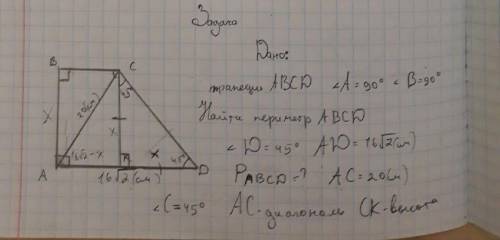 Задача
Дано:
трапеция ABCD ∠A=90° ∠B=90°
Найти периметр ABCD
∠D=45° AD=16√2(см)
P ABCD=? AC=20(см)
∠C=45° AC-диагональ CK-высота
B
C
45°
20(см)
x
x
16√2-x
K
x
45°
A
16√2(см)
D